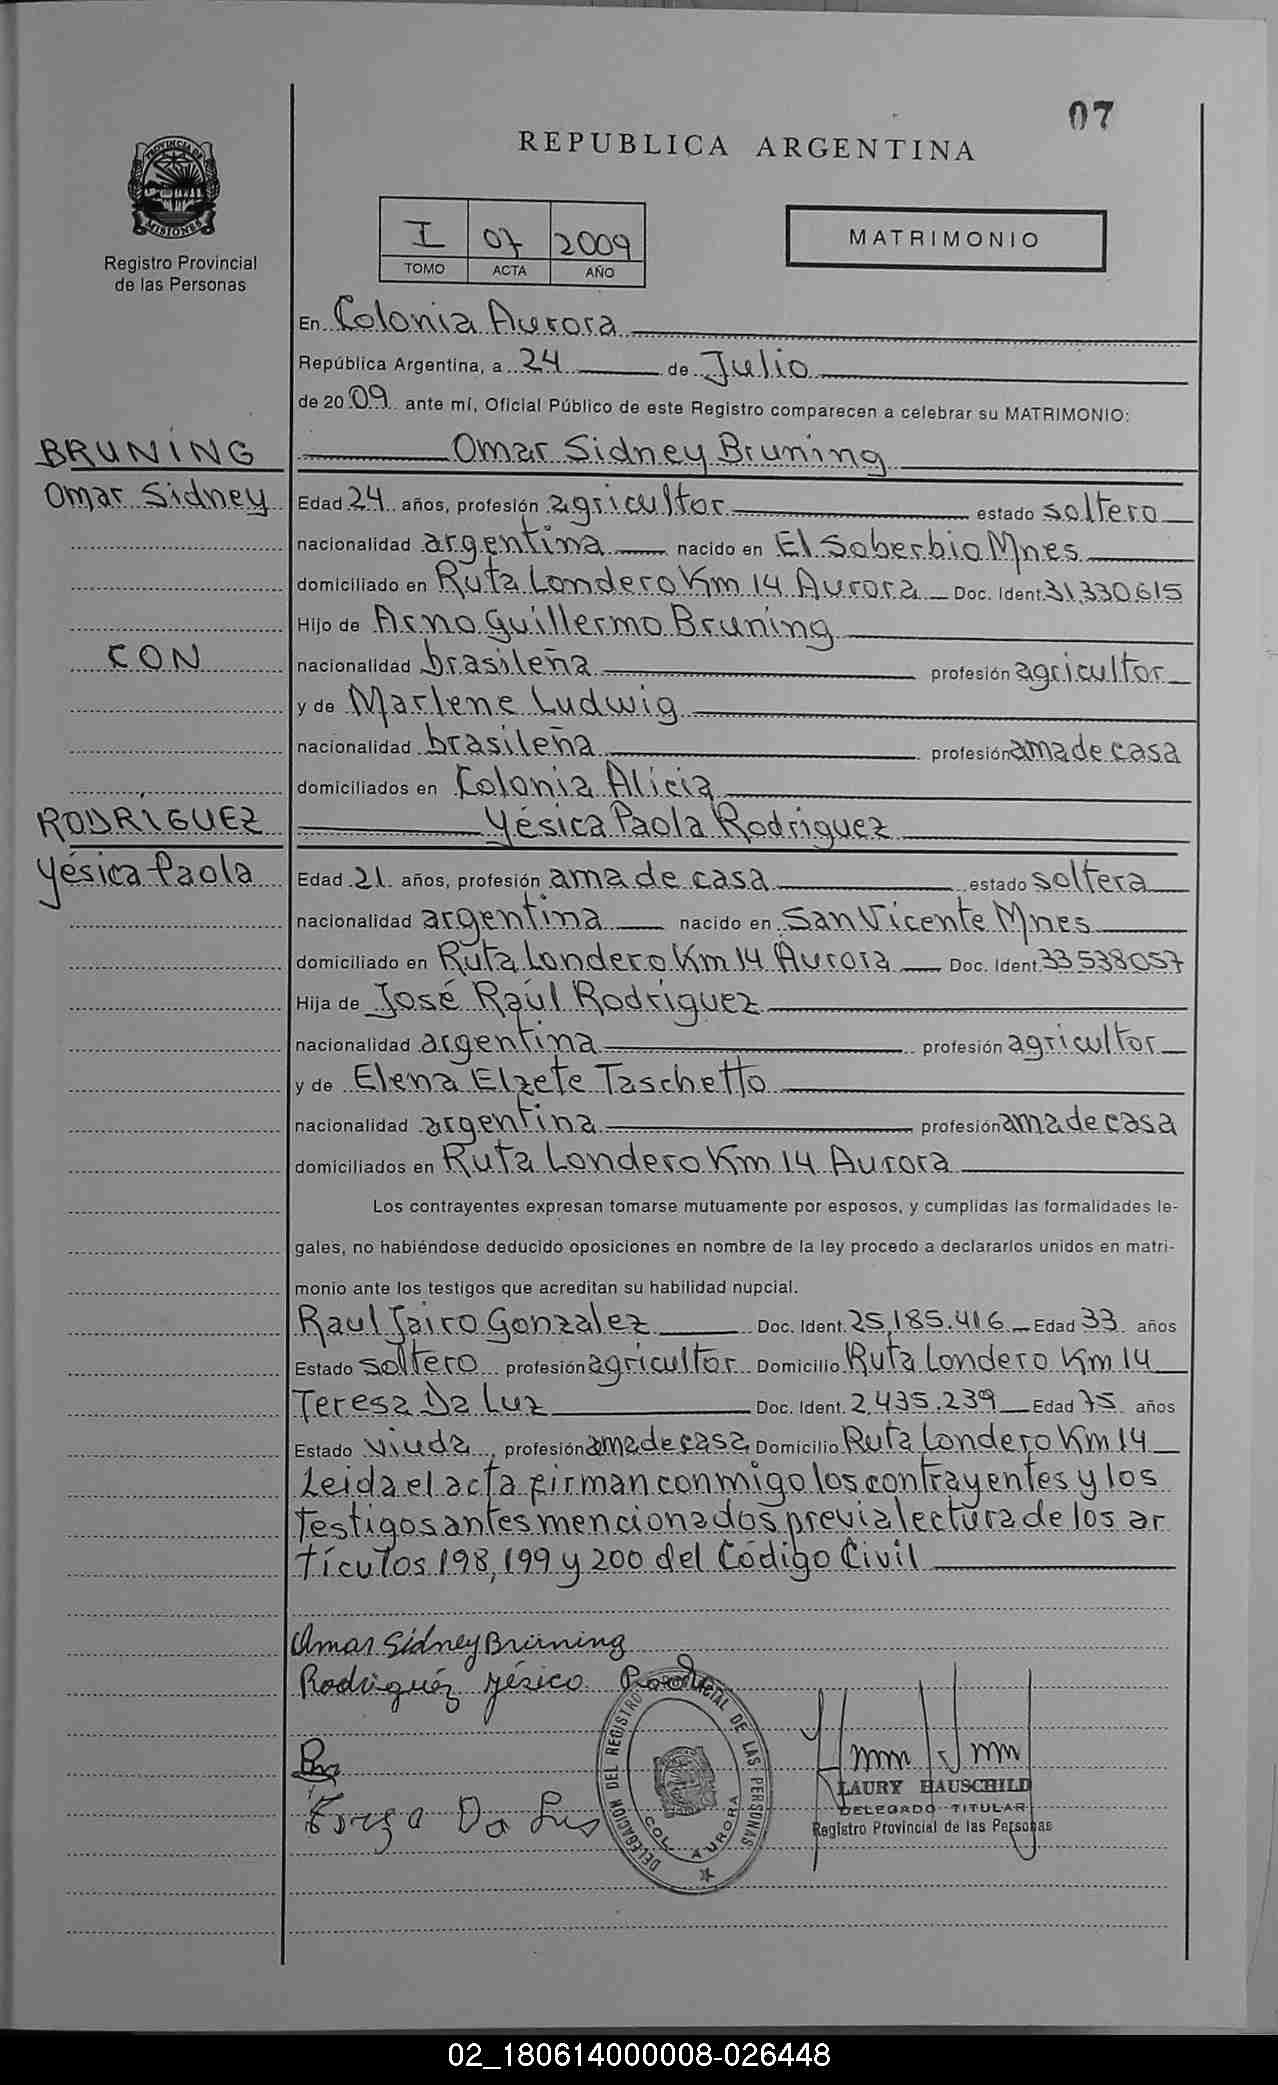 07
REPUBLICA ARGENTINA
PROVINCIA DE MISIONES
Registro Provincial
de las Personas
I 07 2009
TOMO ACTA AÑO
MATRIMONIO
En Colonia Aurora
República Argentina, a 24 de Julio
de 2009 ante mí, Oficial Público de este Registro comparecen a celebrar su MATRIMONIO:
BRUNING
Omar Sidney
CON
RODRÍGUEZ
Yésica Paola
Omar Sidney Bruning
Edad 24 años, profesión agricultor estado soltero
nacionalidad argentina nacido en El Soberbio Mnes
domiciliado en Ruta Londero Km 14 Aurora Doc. Ident. 31.330.615
Hijo de Arno Guillermo Bruning
nacionalidad brasileña profesión agricultor
y de Marlene Ludwig
nacionalidad brasileña profesión ama de casa
domiciliados en Colonia Alicia
Yésica Paola Rodriguez
Edad 21 años, profesión ama de casa estado soltera
nacionalidad argentina nacido en San Vicente Mnes
domiciliado en Ruta Londero Km 14 Aurora Doc. Ident. 33538057
Hija de José Raúl Rodriguez
nacionalidad argentina profesión agricultor
y de Elena Elzete Taschetto
nacionalidad argentina profesión ama de casa
domiciliados en Ruta Londero Km 14 Aurora
Los contrayentes expresan tomarse mutuamente por esposos, y cumplidas las formalidades le-
gales, no habiéndose deducido oposiciones en nombre de la ley procedo a declararlos unidos en matri-
monio ante los testigos que acreditan su habilidad nupcial.
Raul Jairo Gonzalez Doc. Ident. 25.185.416 Edad 33 años
Estado soltero profesión agricultor Domicilio Ruta Londero Km 14
Teresa Da Luz Doc. Ident. 2.435.239 Edad 75 años
Estado viuda, profesión ama de casa Domicilio Ruta Londero Km 14
Leida el acta firman conmigo los contrayentes y los
testigos antes mencionados previa lectura de los ar
tículos 198, 199 y 200 del Código Civil
Omar Sidney Brüning
Rodriguéz Yésica Paola
DELEGACION DEL REGISTRO PROVINCIAL DE LAS PERSONAS
COL. AURORA
LAURY HAUSCHILD
DELEGADO TITULAR
Registro Provincial de las Personas
Da Lus
02_180614000008-026448